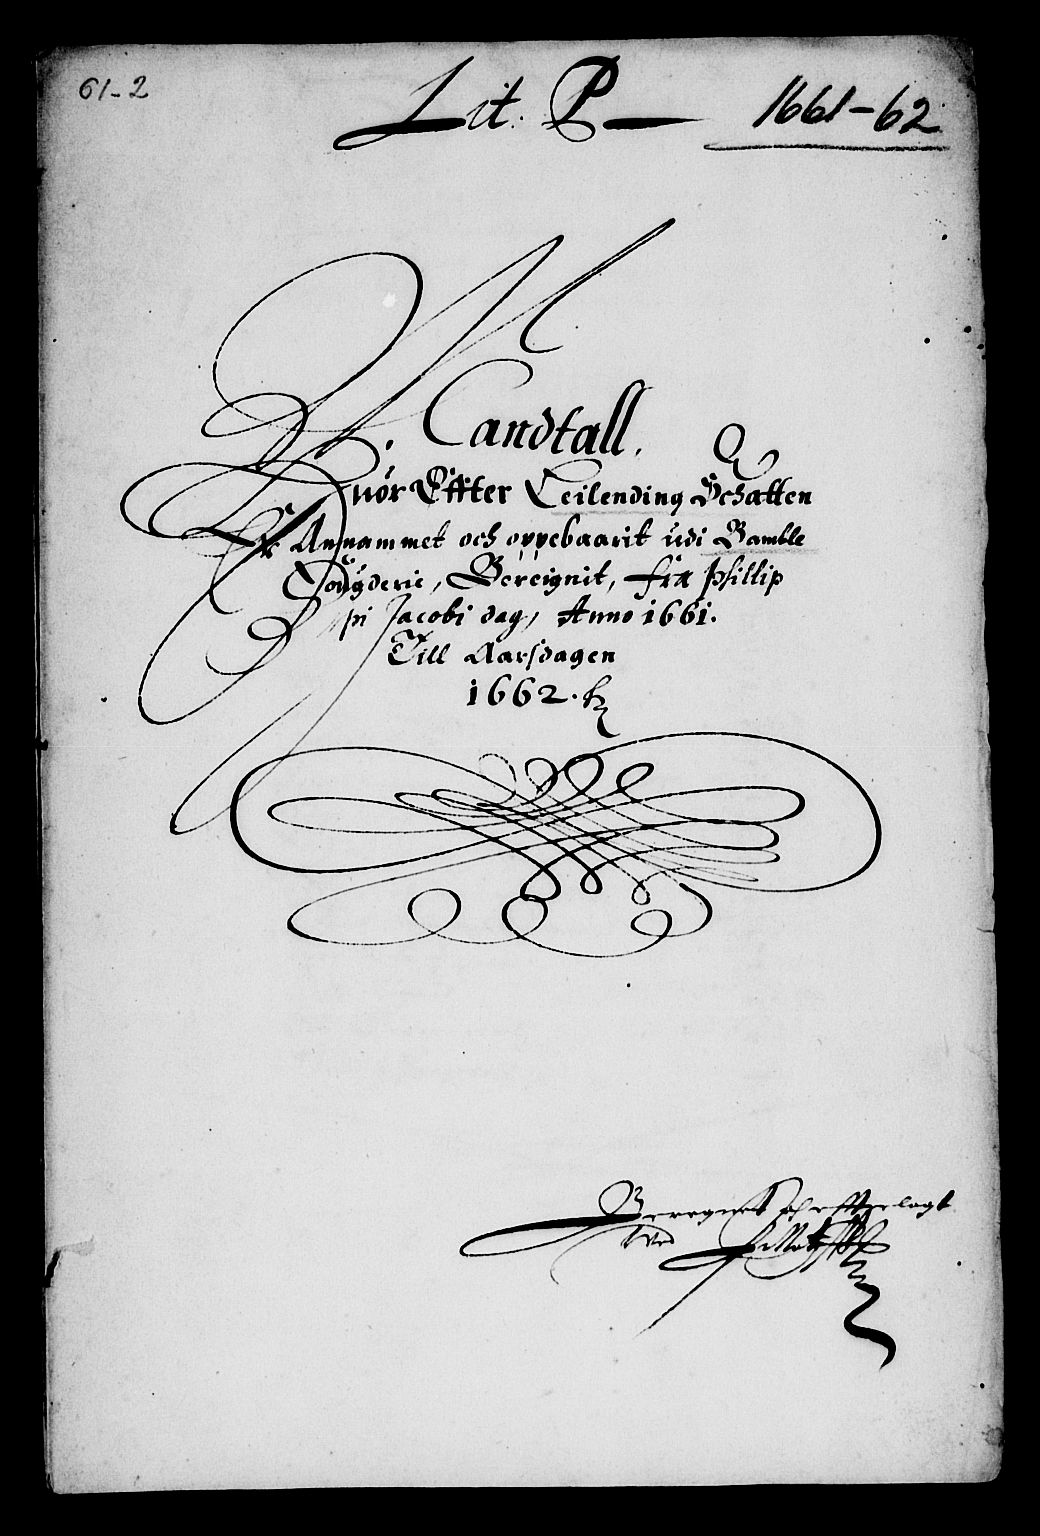 61-2
Lit. P
1661-62
Mandtall.
Huor Effter Leilending Schatten
Er Annammet och oppebaarit udi Bamble
Fougderie, Bereignit, fra Phillip
pi Jacobi dag, Anno 1661.
Till Aarsdagen
1662.
Beregnet och efterlagt
Ved